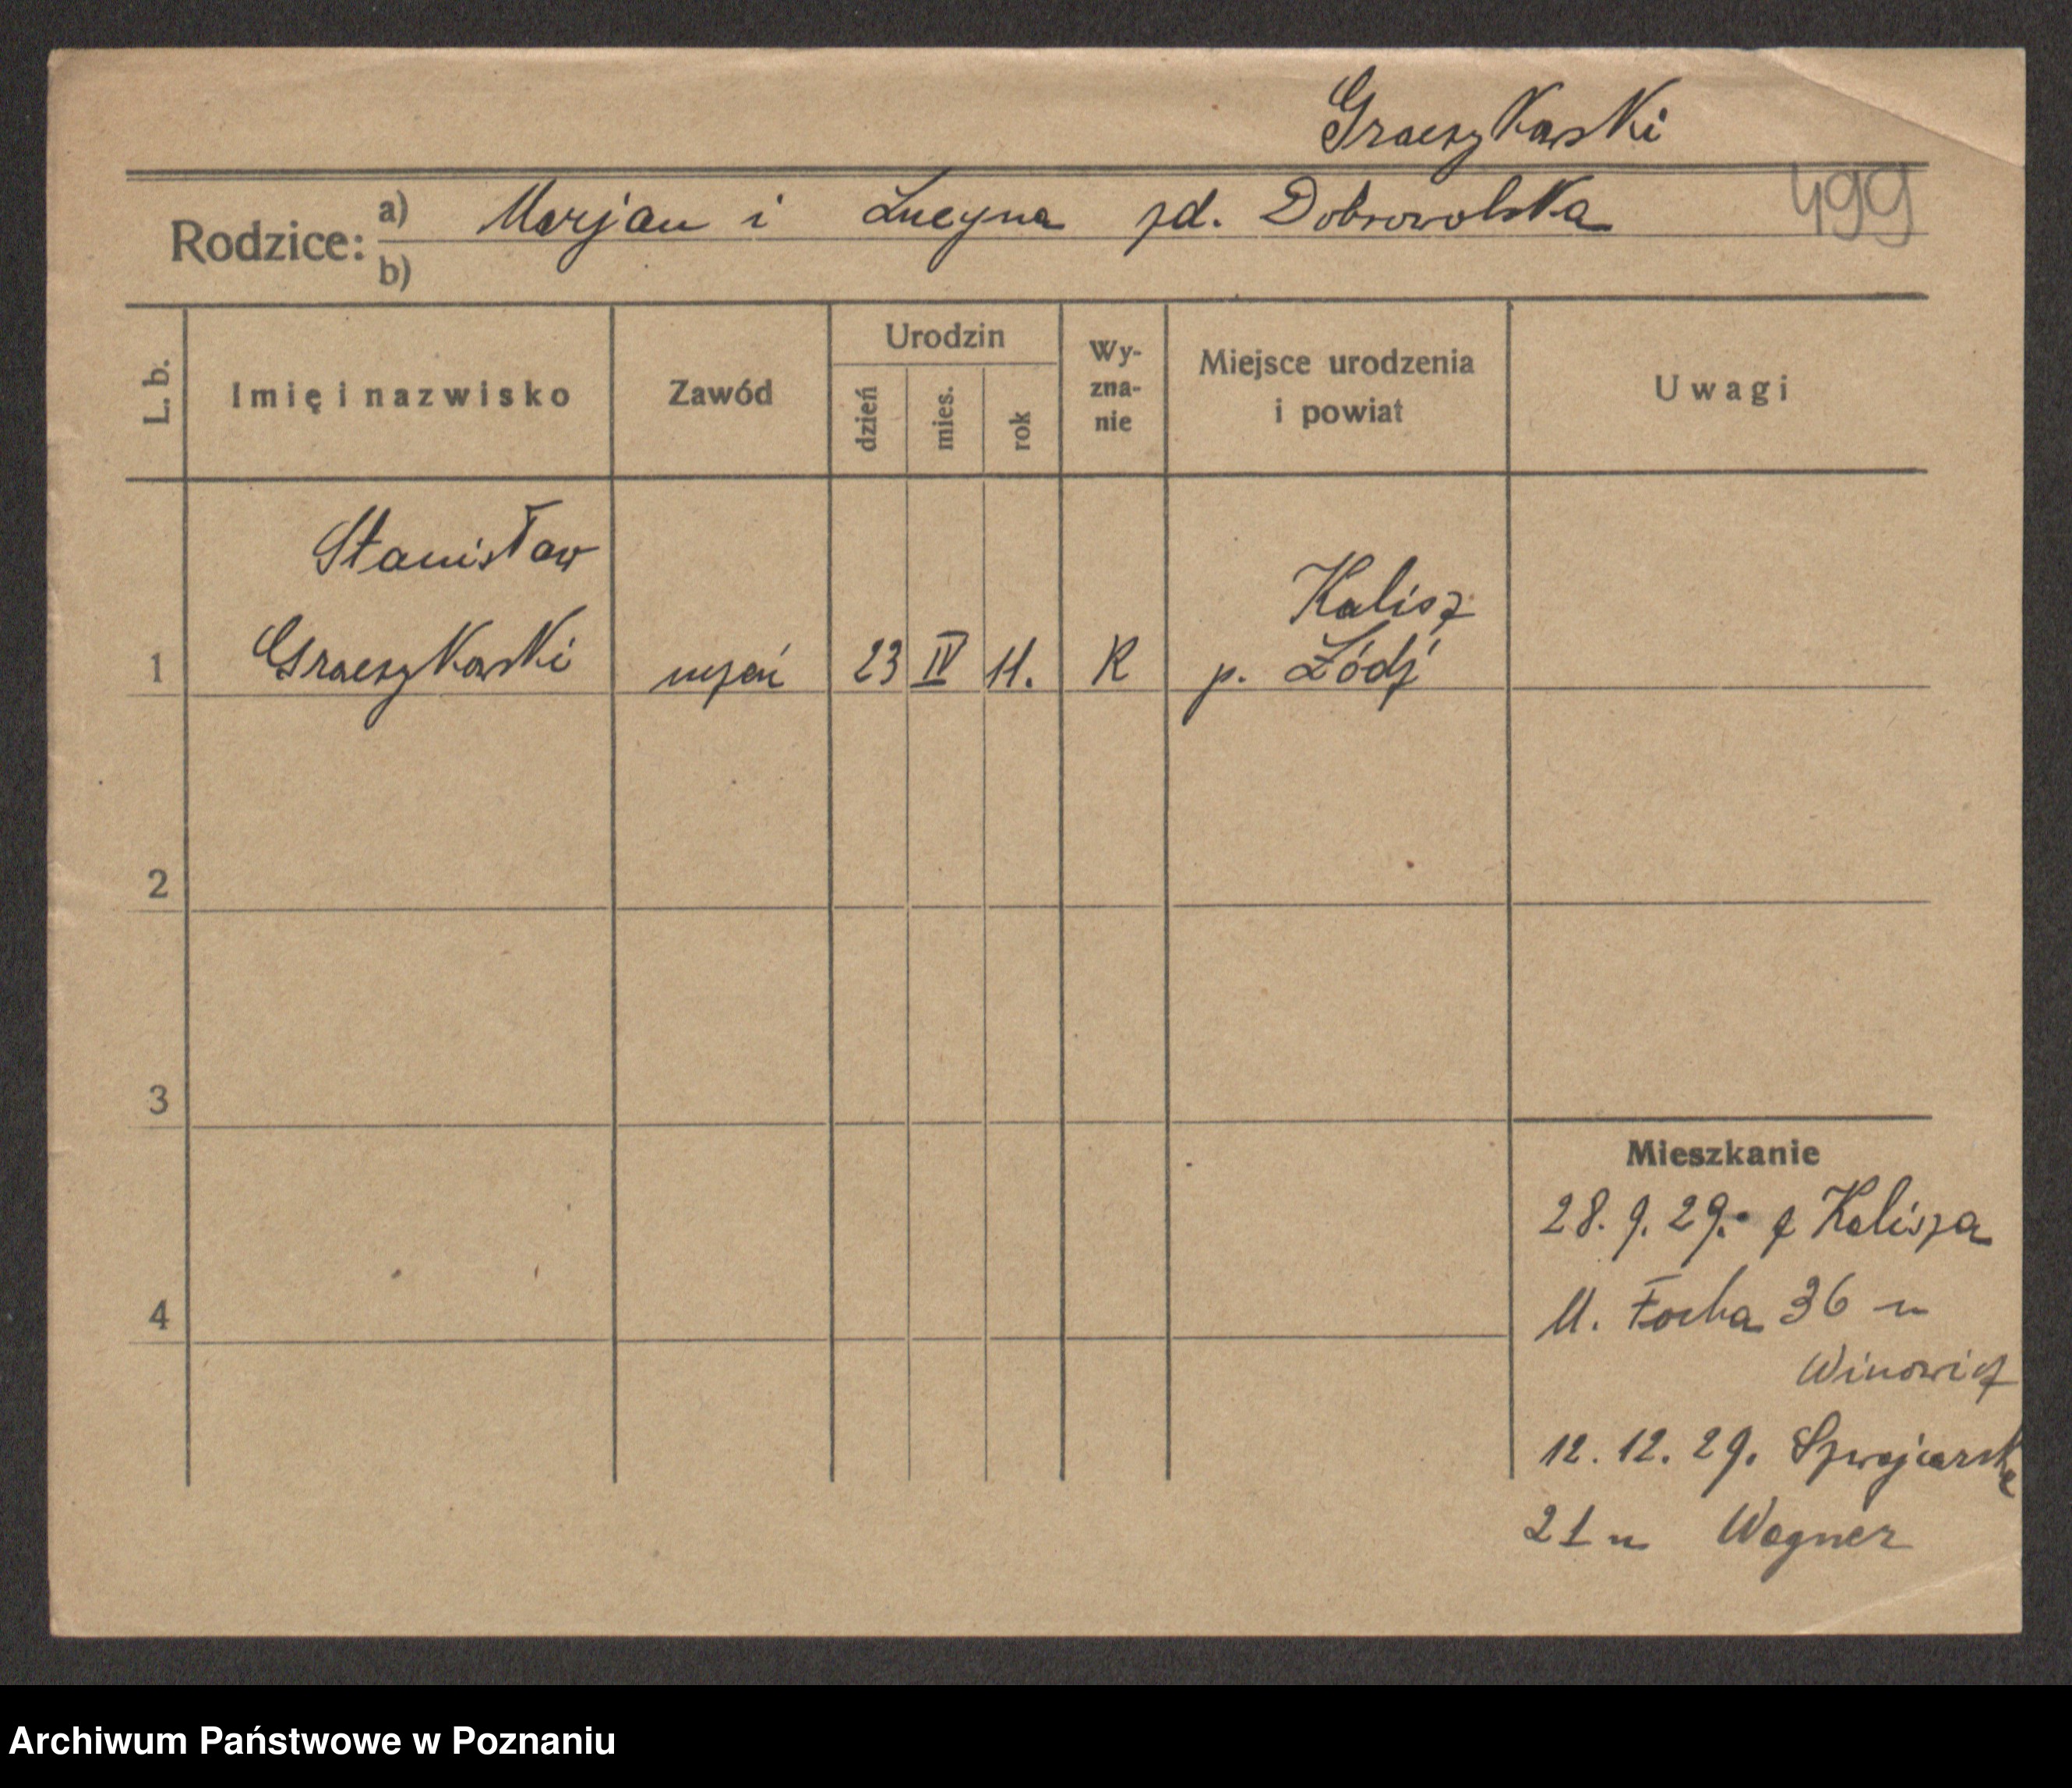 Graczykowski
Rodzice: a) Marjan i Lucyna zd. Dobrowolska 499
b)
L. b. Imię i nazwisko Zawód Urodzin dzień mies. rok Wy-zna-nie Miejsce urodzenia i powiat Uwagi
Stanisław Kalisz
1 uczeń 23 IV 11. R p. Łódź
2
3
Mieszkanie
28. 9. 29. z Kalisza
4 M. Focha 36 u
Winowicz
12. 12. 29. Szwajcarska
21 u Wagner
Archiwum Państwowe w Poznaniu